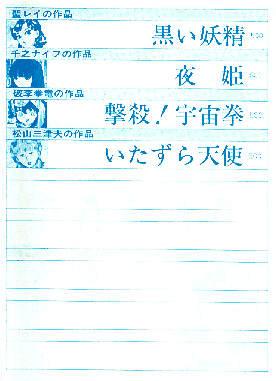 聖レイの作品
黒い妖精 500
千之ナイフの作品
夜姫
破李拳竜の作品
撃殺!宇宙拳 500
松山三津夫の作品
いたずら天使 500